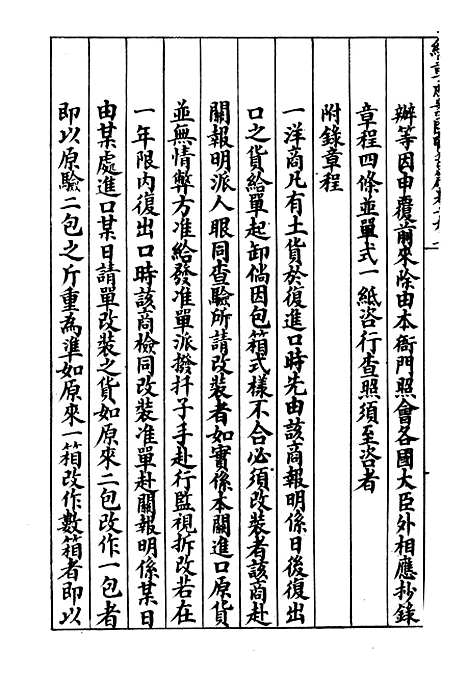 辦等因申覆前來除由本衙門照會各國大臣外相應抄錄
章程四條並單式一紙咨行查照須至咨者
附錄章程
一洋商凡有土貨於復進口時先由該商報明係日後復出
口之貨給單起卸倘因包箱式樣不合必須改裝者該商赴
關報明派人眼同查驗所請改裝者如實係本關進口原貨
並無情弊方准給發准單派撥扦子手赴行監視拆改若在
一年限內復出口時該商檢同改裝准單赴關報明係某日
由某處進口某日請單改裝之貨如原來二包改作一包者
即以原驗二包之斤重為準如原來一箱改作數箱者即以